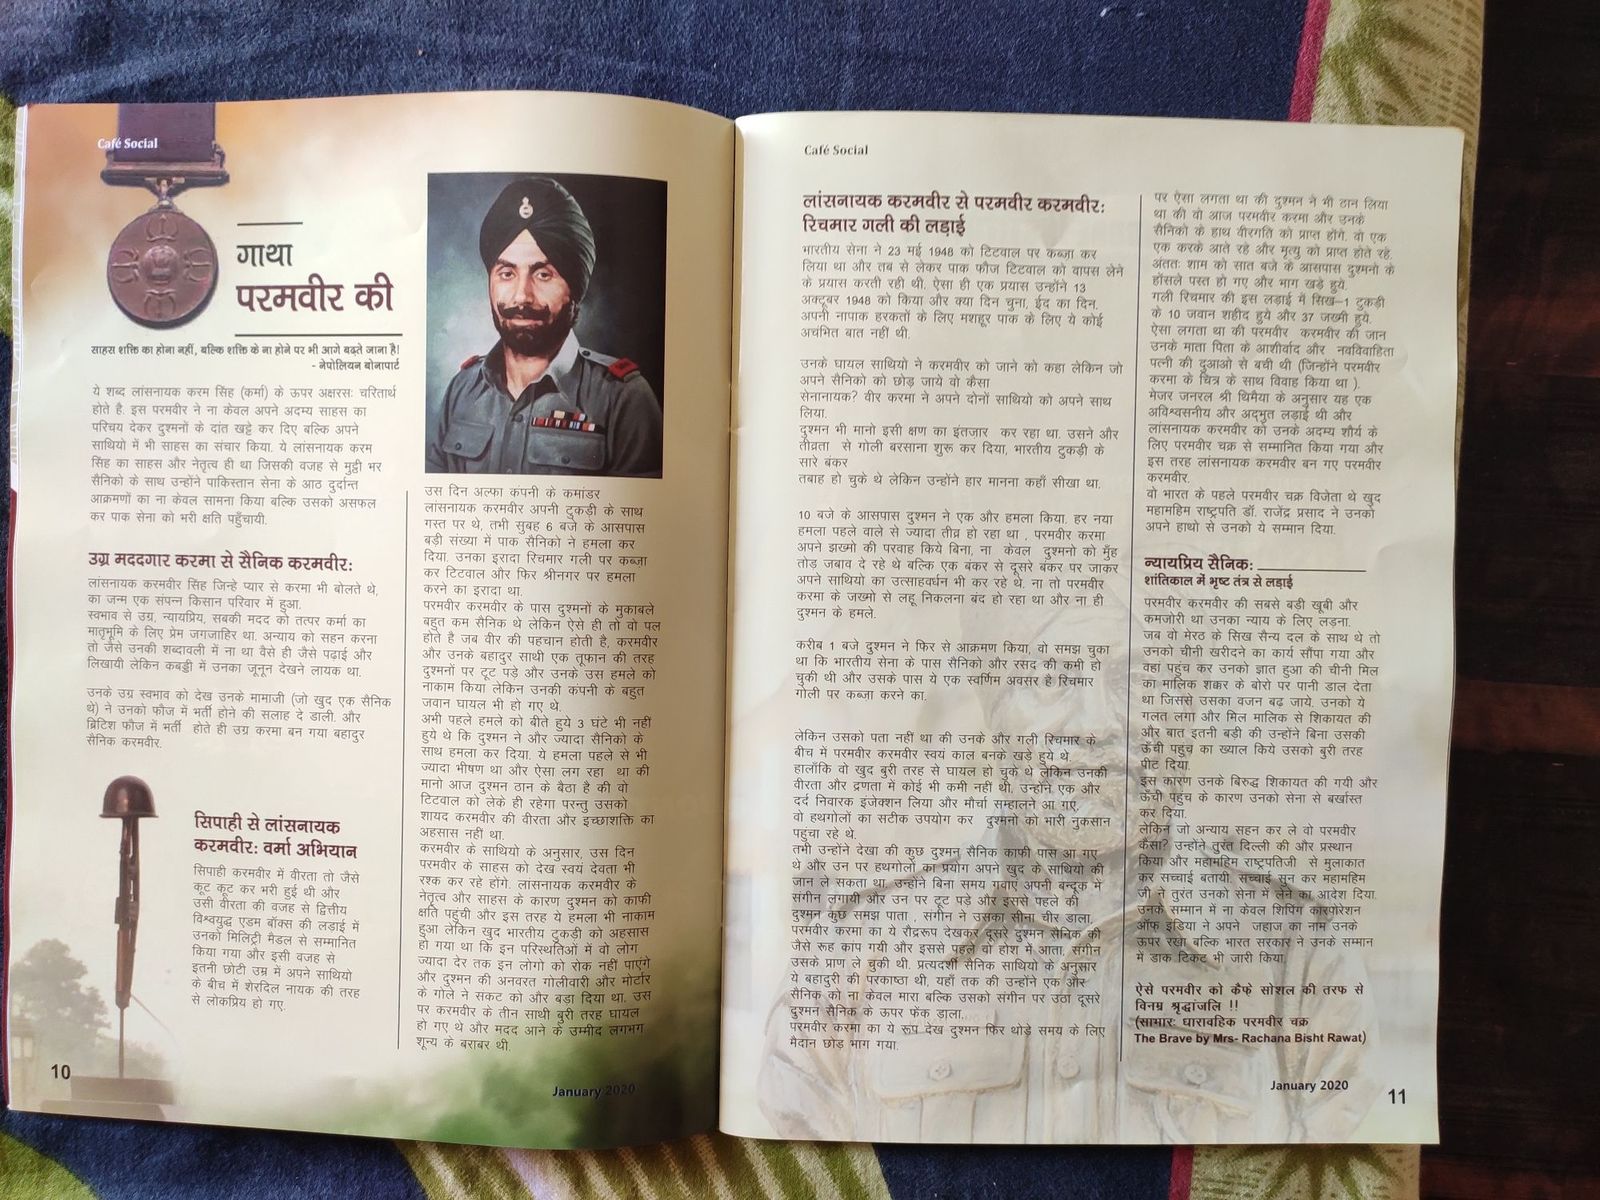 Café Social
गाथा
परमवीर की
साहस शक्ति का होना नहीं, बल्कि शक्ति के ना होने पर भी आगे बढ़ते जाना है!
- नेपोलियन बोनापार्ट
ये शब्द लांसनायक करम सिंह (कर्मा) के ऊपर अक्षरसः चरितार्थ
होते है. इस परमवीर ने ना केवल अपने अदम्य साहस का
परिचय देकर दुश्मनों के दांत खट्टे कर दिए बल्कि अपने
साथियों में भी साहस का संचार किया. ये लांसनायक करम
सिंह का साहस और नेतृत्व ही था जिसकी वजह से मुट्ठी भर
सैनिको के साथ उन्होंने पाकिस्तान सेना के आठ दुर्दान्त
आक्रमणों का ना केवल सामना किया बल्कि उसको असफल
कर पाक सेना को भरी क्षति पहुँचायी.
उग्र मददगार करमा से सैनिक करमवीर:
लांसनायक करमवीर सिंह जिन्हे प्यार से करमा भी बोलते थे,
का जन्म एक संपन्न किसान परिवार में हुआ.
स्वभाव से उग्र, न्यायप्रिय, सबकी मदद को तत्पर कर्मा का
मातृभूमि के लिए प्रेम जगजाहिर था. अन्याय को सहन करना
तो जैसे उनकी शब्दावली में ना था वैसे ही जैसे पढाई और
लिखायी लेकिन कबड्डी में उनका जूनून देखने लायक था.
उनके उग्र स्वभाव को देख उनके मामाजी (जो खुद एक सैनिक
थे) ने उनको फौज में भर्ती होने की सलाह दे डाली. और
ब्रिटिश फौज में भर्ती होते ही उग्र करमा बन गया बहादुर
सैनिक करमवीर.
सिपाही से लांसनायक
करमवीर: वर्मा अभियान
सिपाही करमवीर में वीरता तो जैसे
कूट कूट कर भरी हुई थी और
उसी वीरता की वजह से द्वितीय
विश्वयुद्ध एडम बॉक्स की लड़ाई में
उनको मिलिट्री मैडल से सम्मानित
किया गया और इसी वजह से
इतनी छोटी उम्र में अपने साथियो
के बीच में शेरदिल नायक की तरह
से लोकप्रिय हो गए.
उस दिन अल्फा कंपनी के कमांडर
लांसनायक करमवीर अपनी टुकड़ी के साथ
गस्त पर थे, तभी सुबह 6 बजे के आसपास
बड़ी संख्या में पाक सैनिको ने हमला कर
दिया. उनका इरादा रिचमार गली पर कब्ज़ा
कर टिटवाल और फिर श्रीनगर पर हमला
करने का इरादा था.
परमवीर करमवीर के पास दुश्मनों के मुकाबले
बहुत कम सैनिक थे लेकिन ऐसे ही तो वो पल
होते है जब वीर की पहचान होती है, करमवीर
और उनके बहादुर साथी एक तूफान की तरह
दुश्मनों पर टूट पड़े और उनके उस हमले को
नाकाम किया लेकिन उनकी कंपनी के बहुत
जवान घायल भी हो गए थे.
अभी पहले हमले को बीते हुये 3 घंटे भी नहीं
हुये थे कि दुश्मन ने और ज्यादा सैनिको के
साथ हमला कर दिया. ये हमला पहले से भी
ज्यादा भीषण था और ऐसा लग रहा था की
मानो आज दुश्मन ठान के बैठा है की वो
टिटवाल को लेके ही रहेगा परन्तु उसको
शायद करमवीर की वीरता और इच्छाशक्ति का
अहसास नहीं था.
करमवीर के साथियो के अनुसार, उस दिन
परमवीर के साहस को देख स्वयं देवता भी
रश्क कर रहे होगे. लांसनायक करमवीर के
नेतृत्व और साहस के कारण दुश्मन को काफी
क्षति पहुंची और इस तरह ये हमला भी नाकाम
हुआ लेकिन खुद भारतीय टुकड़ी को अहसास
हो गया था कि इन परिस्थतिओं में वो लोग
ज्यादा देर तक इन लोगो को रोक नहीं पाएंगे
और दुश्मन की अनवरत गोलीवारी और मोर्टार
के गोले ने सकट को और बडा दिया था. उस
पर करमवीर के तीन साथी बुरी तरह घायल
हो गए थे और मदद आने के उम्मीद लगभग
शून्य के बराबर थी.
10
January 2020
Café Social
लांसनायक करमवीर से परमवीर करमवीर:
रिचमार गली की लड़ाई
भारतीय सेना ने 23 मई 1948 को टिटवाल पर कब्ज़ा कर
लिया था और तब से लेकर पाक फौज टिटवाल को वापस लेने
के प्रयास करती रही थी. ऐसा ही एक प्रयास उन्होंने 13
अक्टूबर 1948 को किया और क्या दिन चुना, ईद का दिन.
अपनी नापाक हरकतों के लिए मशहूर पाक के लिए ये कोई
अचंभित बात नहीं थी.
उनके घायल साथियो ने करमवीर को जाने को कहा लेकिन जो
अपने सैनिको को छोड़ जाये वो कैसा
सेनानायक? वीर करमा ने अपने दोनों साथियो को अपने साथ
लिया.
दुश्मन भी मानो इसी क्षण का इंतजार कर रहा था. उसने और
तीव्रता से गोली बरसाना शुरू कर दिया, भारतीय टुकड़ी के
सारे बंकर
तबाह हो चुके थे लेकिन उन्होंने हार मानना कहाँ सीखा था.
10 बजे के आसपास दुश्मन ने एक और हमला किया. हर नया
हमला पहले वाले से ज्यादा तीव्र हो रहा था , परमवीर करमा
अपने झख्मो की परवाह किये बिना, ना केवल दुश्मनो को मुँह
तोड़ जबाव दे रहे थे बल्कि एक बंकर से दूसरे बंकर पर जाकर
अपने साथियो का उत्साहवर्धन भी कर रहे थे. ना तो परमवीर
करमा के जख्मो से लहू निकलना बंद हो रहा था और ना ही
दुश्मन के हमले.
करीब 1 बजे दुश्मन ने फिर से आक्रमण किया, वो समझ चुका
था कि भारतीय सेना के पास सैनिको और रसद की कमी हो
चुकी थी और उसके पास ये एक स्वर्णिम अवसर है रिचमार
गोली पर कब्जा करने का.
लेकिन उसको पता नहीं था की उनके और गली रिचमार के
बीच में परमवीर करमवीर स्वयं काल बनके खड़े हुये थे.
हालाँकि वो खुद बुरी तरह से घायल हो चुके थे लेकिन उनकी
वीरता और द्रणता में कोई भी कमी नहीं थी. उन्होंने एक और
दर्द निवारक इंजेक्शन लिया और मौर्चा सम्हालने आ गए.
वो हथगोलों का सटीक उपयोग कर दुश्मनो को भारी नुकसान
पहुचा रहे थे.
तभी उन्होंने देखा की कुछ दुश्मन सैनिक काफी पास आ गए
थे और उन पर हथगोलों का प्रयोग अपने खुद के साथियो की
जान ले सकता था. उन्होंने बिना समय गवाए अपनी बन्दूक में
संगीन लगायी और उन पर टूट पड़े और इससे पहले की
दुश्मन कुछ समझ पाता , संगीन ने उसका सीना चीर डाला.
परमवीर करमा का ये रौद्ररूप देखकर दूसरे दुश्मन सैनिक की
जैसे रूह कांप गयी और इससे पहले वो होश में आता, संगीन
उसके प्राण ले चुकी थी. प्रत्यदर्शी सैनिक साथियो के अनुसार
ये बहादुरी की परकाष्ठा थी, यहाँ तक की उन्होंने एक और
सैनिक को ना केवल मारा बल्कि उसको संगीन पर उठा दूसरे
दुश्मन सैनिक के ऊपर फेक डाला.
परमवीर करमा का ये रूप देख दुश्मन फिर थोड़े समय के लिए
मैदान छोड़ भाग गया.
पर ऐसा लगता था की दुश्मन ने भी ठान लिया
था की वो आज परमवीर करमा और उनके
सैनिको के हाथ वीरगति को प्राप्त होंगे. वो एक
एक करके आते रहे और मृत्यु को प्राप्त होते रहे.
अंततः शाम को सात बजे के आसपास दुश्मनो के
हौसले पस्त हो गए और भाग खड़े हुये.
गली रिचमार की इस लड़ाई में सिख–1 टुकड़ी
के 10 जवान शहीद हुये और 37 जख्मी हुये.
ऐसा लगता था की परमवीर करमवीर की जान
उनके माता पिता के आशीर्वाद और नवविवाहिता
पत्नी की दुआओ से बची थी (जिन्होंने परमवीर
करमा के चित्र के साथ विवाह किया था ).
मेजर जनरल श्री थिमैया के अनुसार यह एक
अविश्वसनीय और अदभुत लड़ाई थी और
लांसनायक करमवीर को उनके अदम्य शौर्य के
लिए परमवीर चक्र से सम्मानित किया गया और
इस तरह लांसनायक करमवीर बन गए परमवीर
करमवीर.
वो भारत के पहले परमवीर चक्र विजेता थे खुद
महामहिम राष्ट्रपति डॉ. राजेंद्र प्रसाद ने उनको
अपने हाथो से उनको ये सम्मान दिया.
न्यायप्रिय सैनिक:
शांतिकाल में भृष्ट तंत्र से लड़ाई
परमवीर करमवीर की सबसे बड़ी खूबी और
कमजोरी था उनका न्याय के लिए लड़ना.
जब वो मेरठ के सिख सैन्य दल के साथ थे तो
उनको चीनी खरीदने का कार्य सौंपा गया और
वहां पहुंच कर उनको ज्ञात हुआ की चीनी मिल
का मालिक शक्कर के बोरो पर पानी डाल देता
था जिससे उसका वजन बढ जाये. उनको ये
गलत लगा और मिल मालिक से शिकायत की
और बात इतनी बड़ी की उन्होंने बिना उसकी
ऊँची पहुंच का ख्याल किये उसको बुरी तरह
पीट दिया.
इस कारण उनके बिरुद्ध शिकायत की गयी और
ऊँची पहुंच के कारण उनको सेना से बर्खास्त
कर दिया.
लेकिन जो अन्याय सहन कर ले वो परमवीर
कैसा? उन्होंने तुरंत दिल्ली की और प्रस्थान
किया और महामहिम राष्ट्रपतिजी से मुलाकात
कर सच्चाई बतायी. सच्चाई सुन कर महामहिम
जी ने तुरत उनको सेना में लेने का आदेश दिया.
उनके सम्मान में ना केवल शिपिंग कारपोरेशन
ऑफ इंडिया ने अपने जहाज का नाम उनके
ऊपर रखा बल्कि भारत सरकार ने उनके सम्मान
में डाक टिकट भी जारी किया.
ऐसे परमवीर को कैफे सोशल की तरफ से
विनम्र श्रृद्धांजलि !!
(साभारः धारावाहिक परमवीर चक्र
The Brave by Mrs- Rachana Bisht Rawat)
January 2020
11